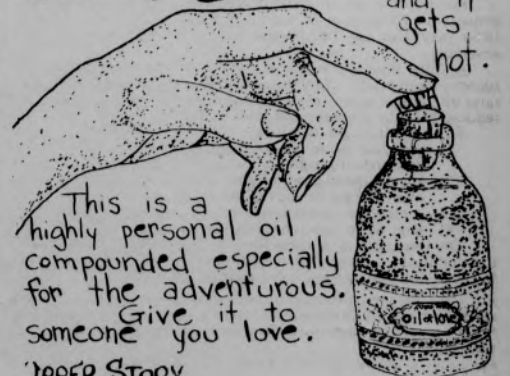 and it
gets
hot.
This is a
highly personal oil
compounded especially
for the adventurous.
Give it to
someone you love.
UPPER STORY
oil of love